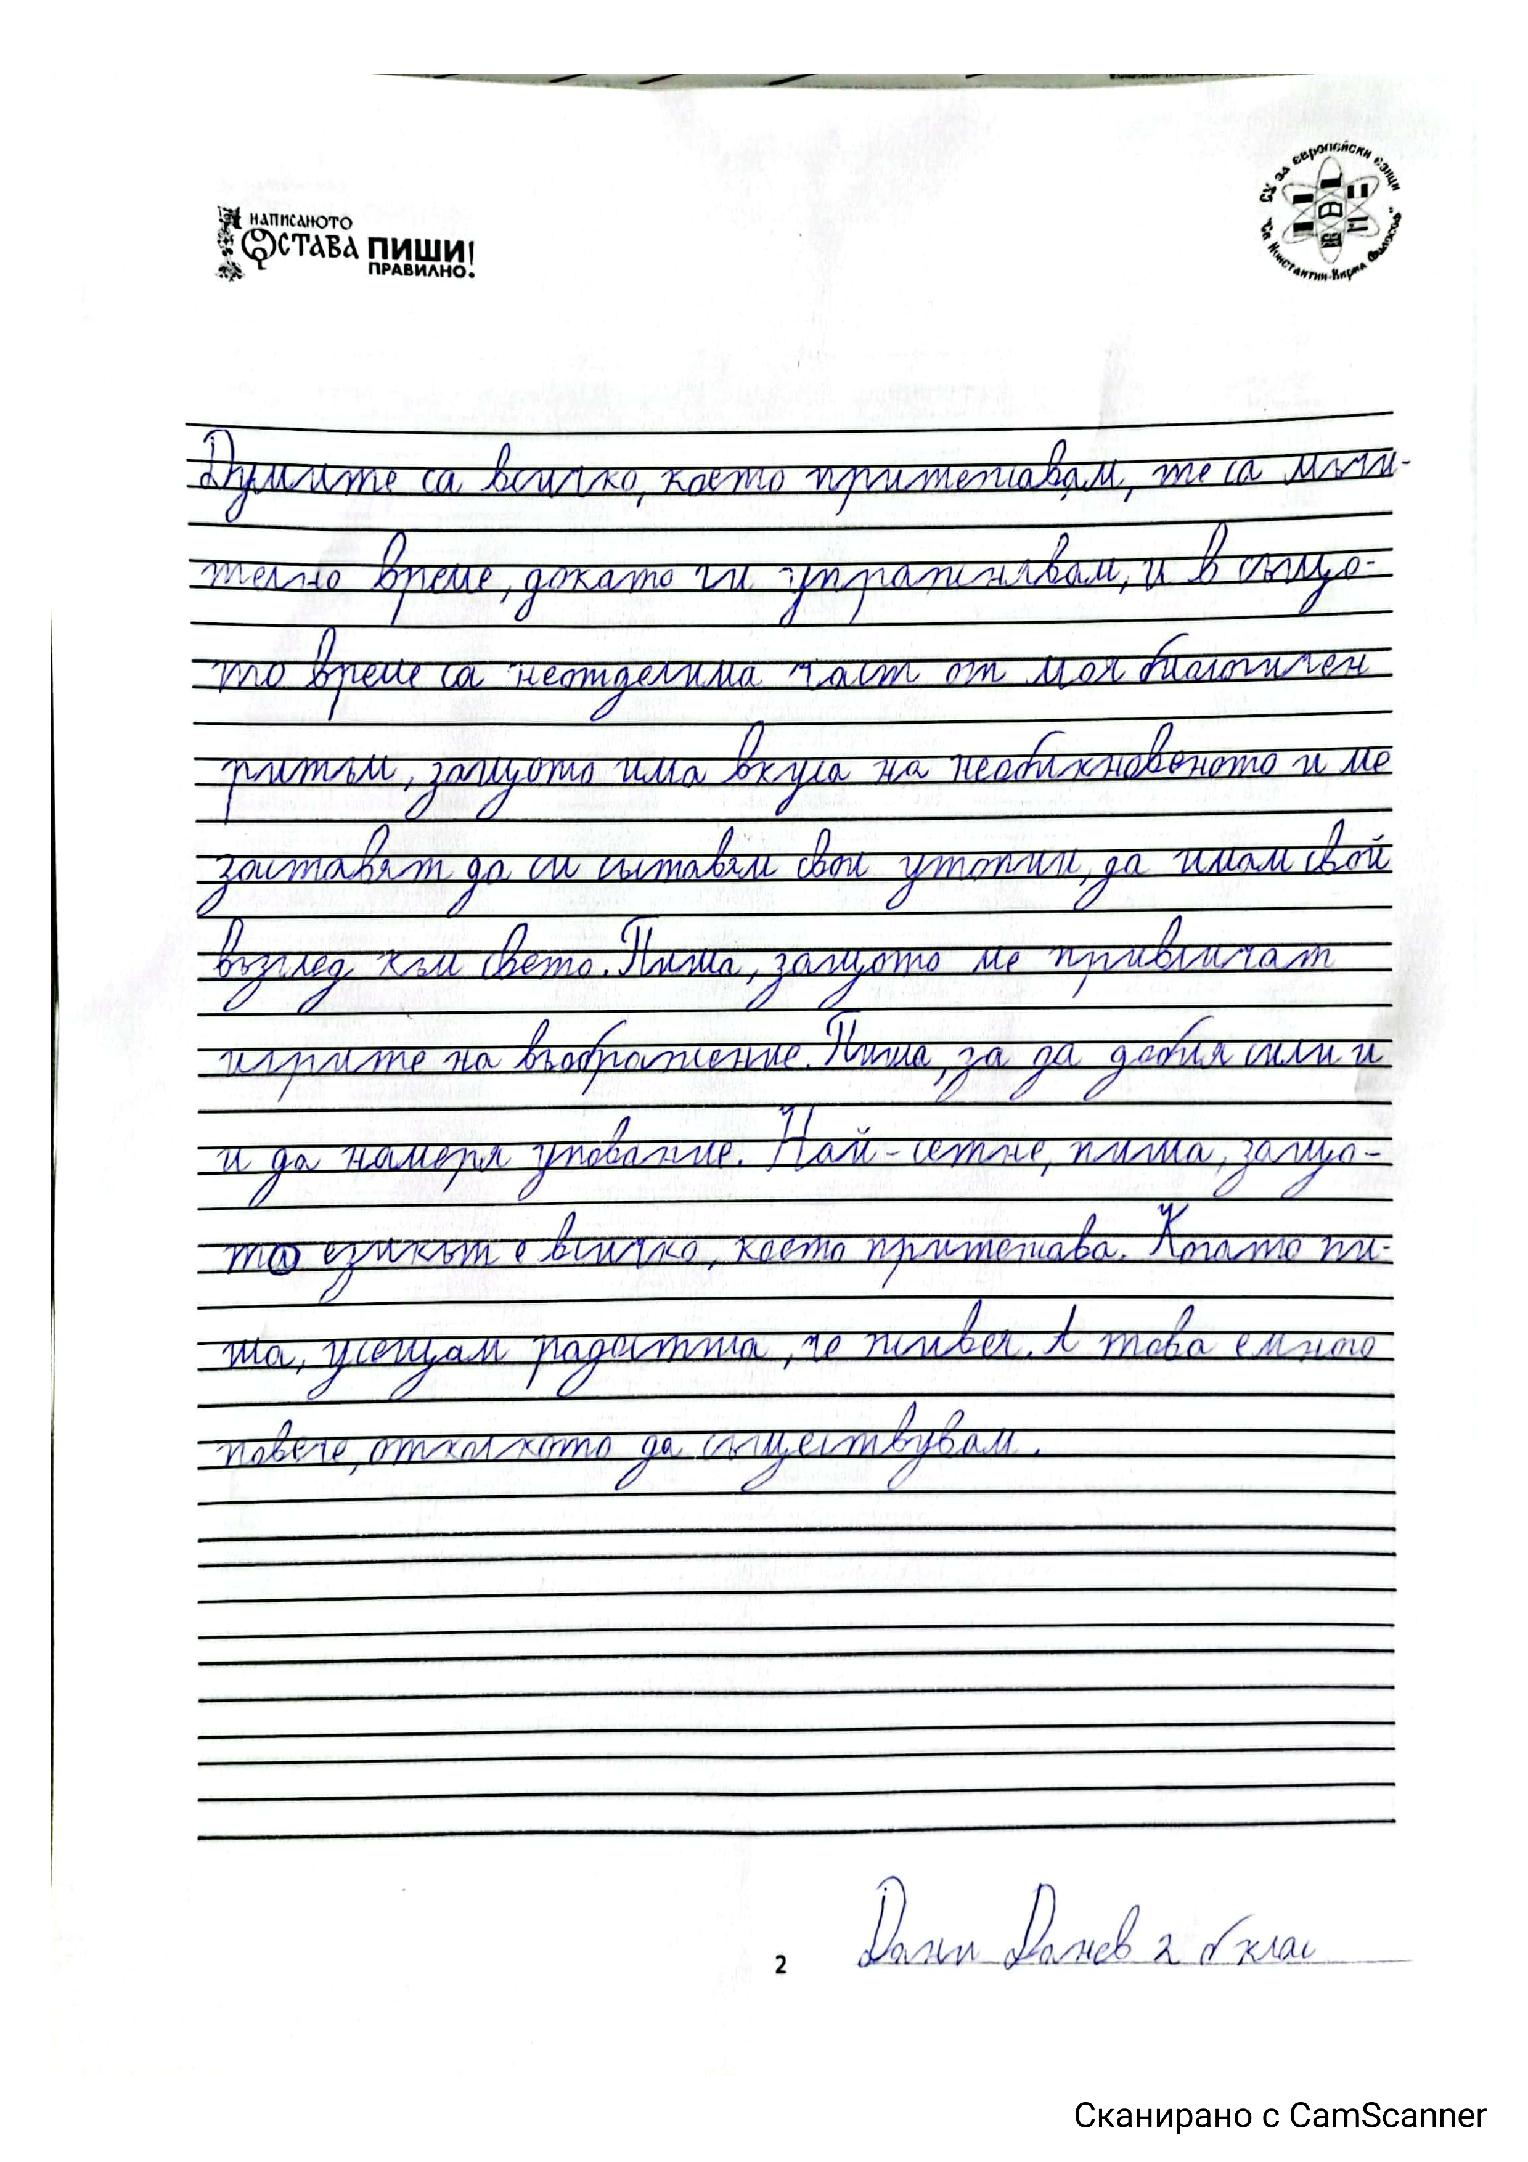 НАПИСАНОТО
ОСТАВА ПИШИ!
ПРАВИЛНО.
СУ за европейски езици
"Св. Константин-Кирил Философ"
Думите са всичко, което притежавам, те са мъчи-
телно време, докато ги упражнявам, и в също-
то време са неотделима част от моя биологичен
ритъм, защото има вкуса на необикновеното и ме
заставят да си съставям свои утопии, да имам свой
възглед към света. Пиша, защото ме привличат
игрите на въображение. Пиша, за да добия сили и
и да намеря упование. Най-сетне, пиша, защо-
то езикът е всичко, което притежава. Когато пи-
ша, усещам радостта, че живея. А това е много
повече, отколкото да съществувам.
2
Дани Данев 2 б клас
Сканирано с CamScanner